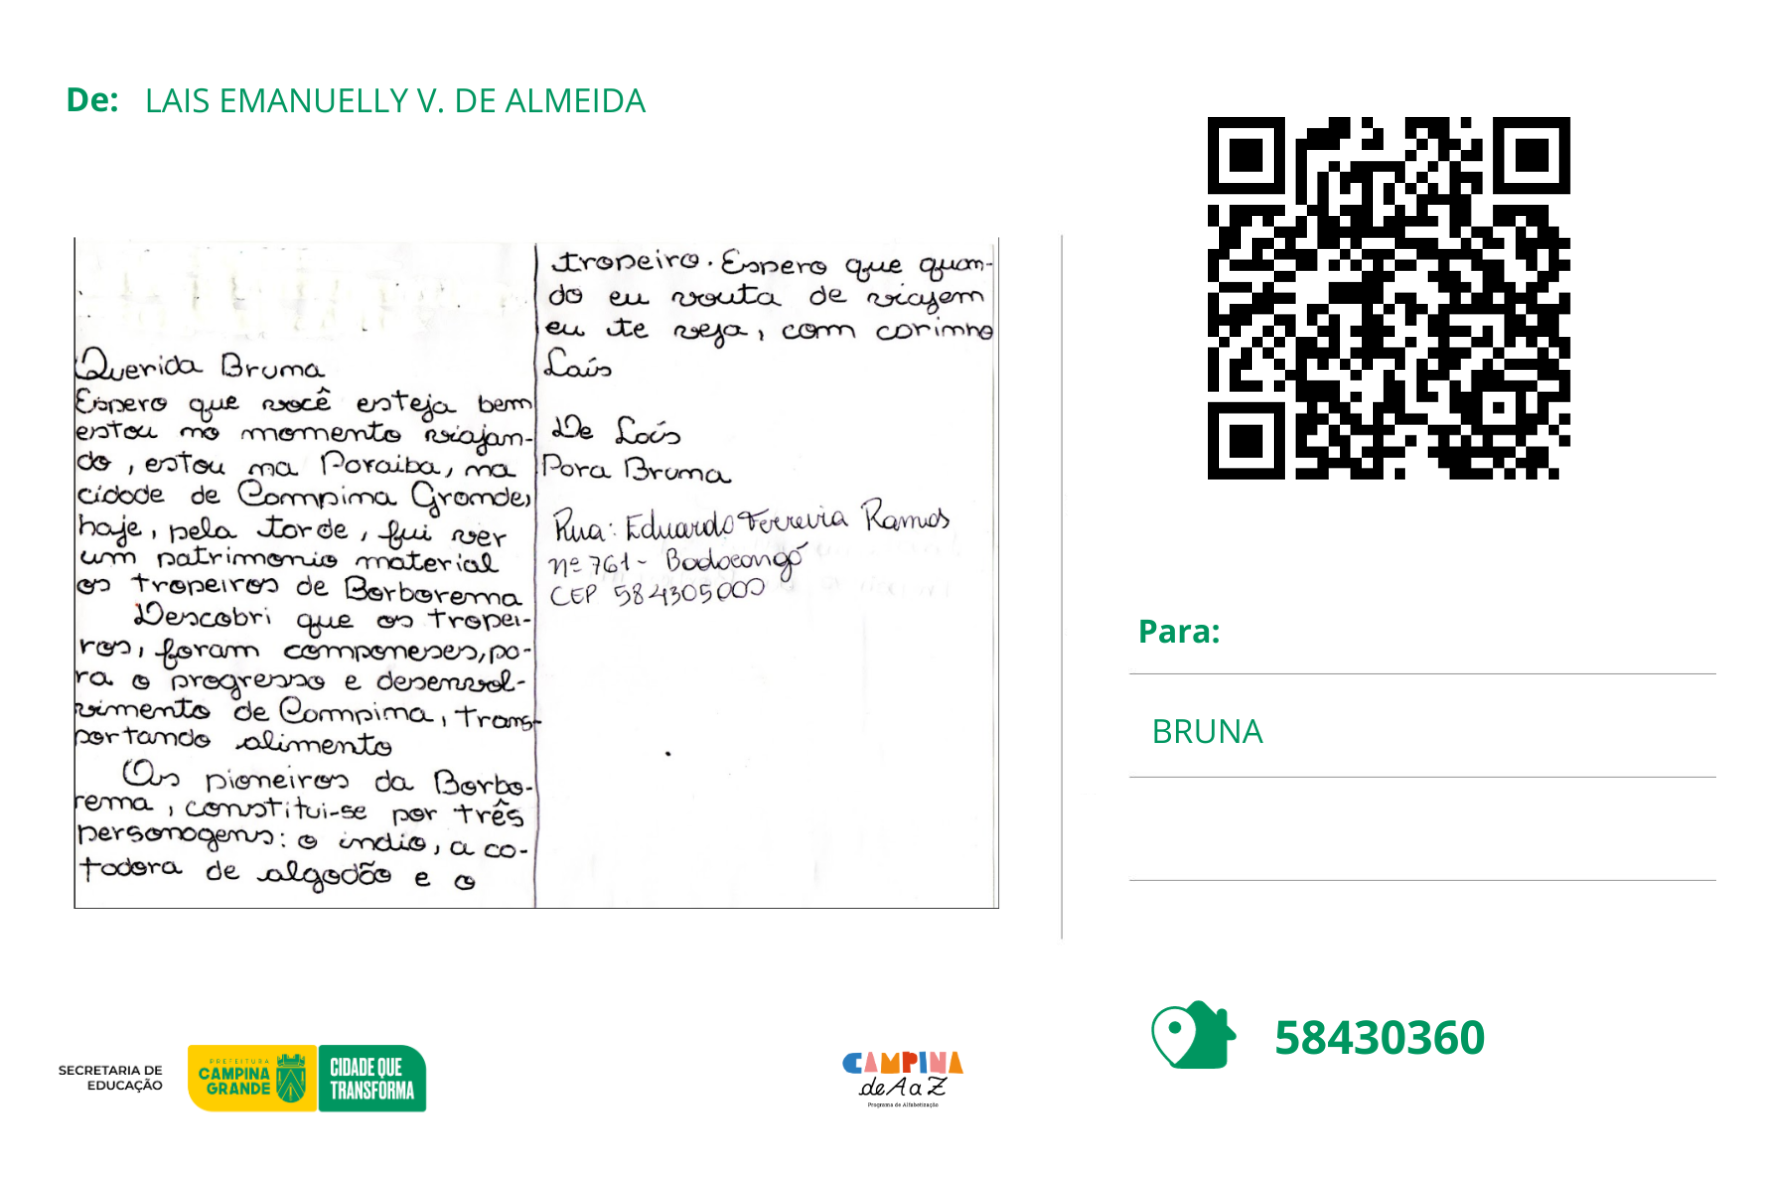 De: LAIS EMANUELLY V. DE ALMEIDA
Querida Bruna
Espero que você esteja bem
estou no momento viajan-
do, estou na Paraiba, na
cidade de Campina Grande,
hoje, pela tarde, fui ver
um patrimonio material
os tropeiros de Borborema
Descobri que os tropei-
ros, foram componeses, pa-
ra o progresso e desenvol-
vimento de Campina, trans-
portando alimento
Os pioneiros da Borbo-
rema, constitui-se por três
personagens: o indio, a ca-
tadora de algodão e o
tropeiro. Espero que quan-
do eu vouta de viajem
eu te veja, com carinho
Laís
De Laís
Para Bruna
Rua: Eduardo Ferreira Ramos
nº 761 - Bodocongó
CEP 584305000
Para:
BRUNA
58430360
SECRETARIA DE
EDUCAÇÃO
PREFEITURA
CAMPINA
GRANDE
CIDADE QUE
TRANSFORMA
CAMPINA
de A a Z
Programa de Alfabetização